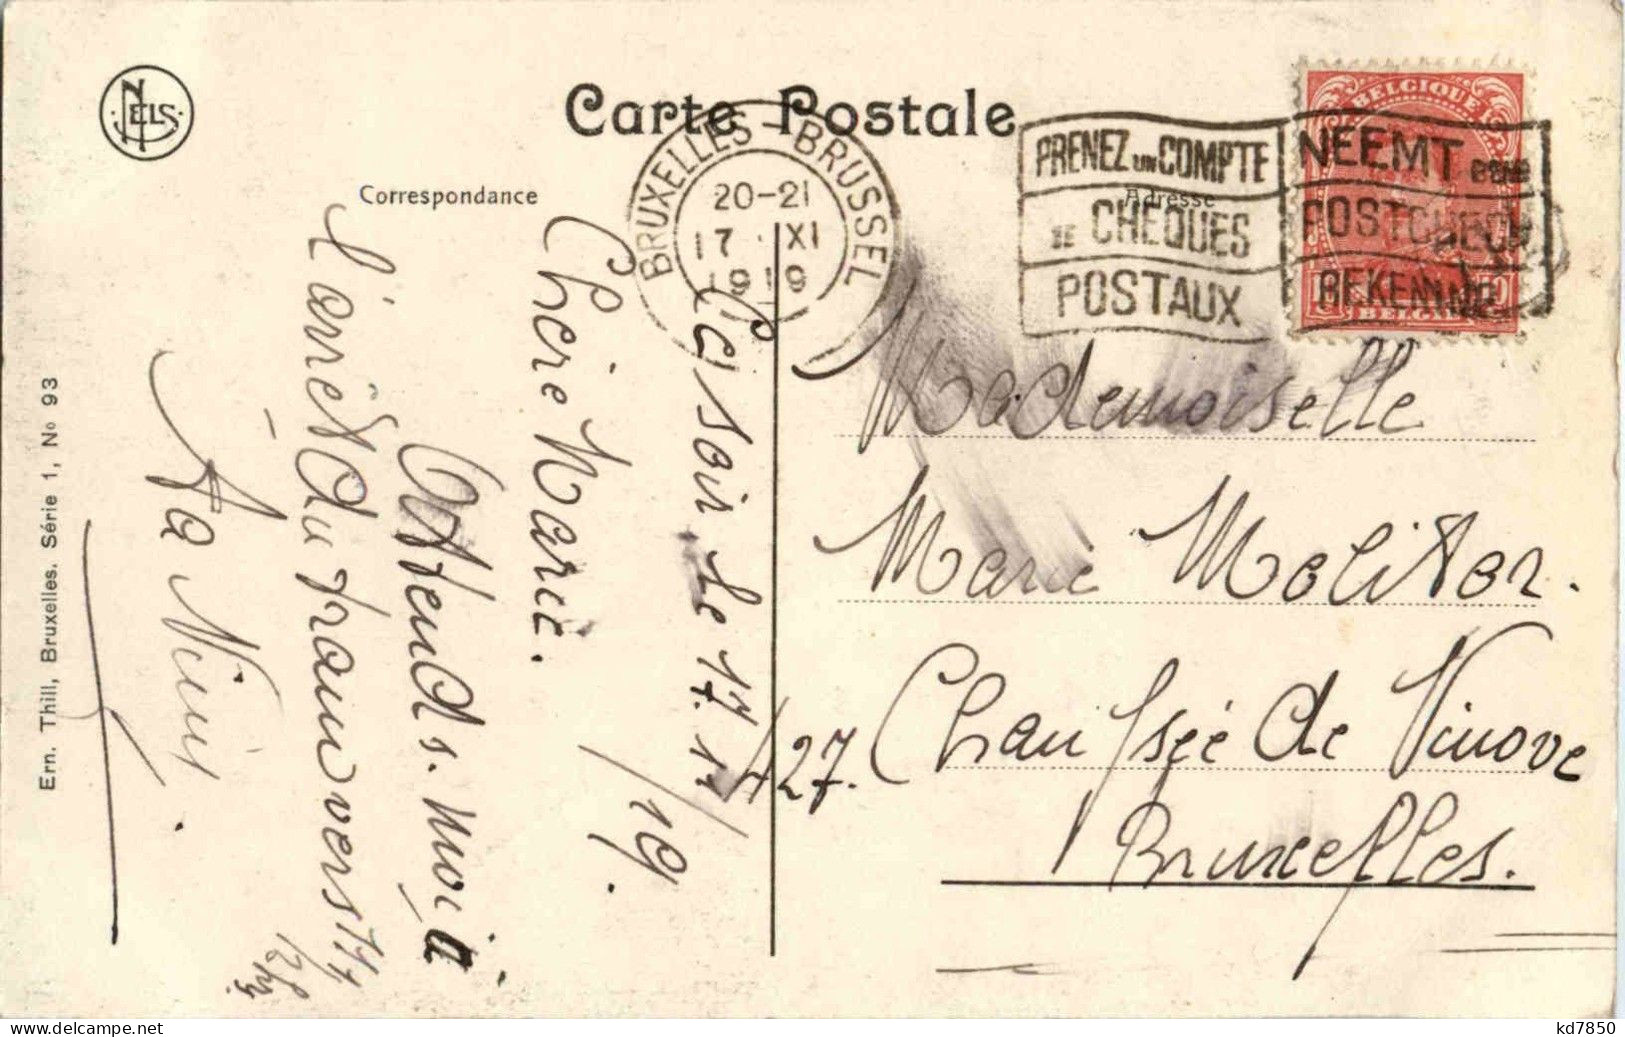 NELS
Carte Postale
Correspondance
Adresse
BRUXELLES - BRUSSEL
20-21
17 XI
1919
PRENEZ UN COMPTE
DE CHEQUES
POSTAUX
NEEMT EENE
POSTCHECK
REKENING
BELGIQUE
BELGIË
Ern. Thill, Bruxelles. Série 1, No 93
Ce soir le 17.11
/19.
Chère Marie.
Attends. moi à
l'arrêt du tram vers
Ta Nini.
Mademoiselle
Marie Molitor.
427. Chaussée de Ninove
Bruxelles.
kd7850